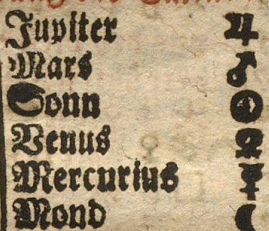 Jupiter ♃
Mars ♂
Sonn ☉
Venus ♀
Mercurius ☿
Mond ☾